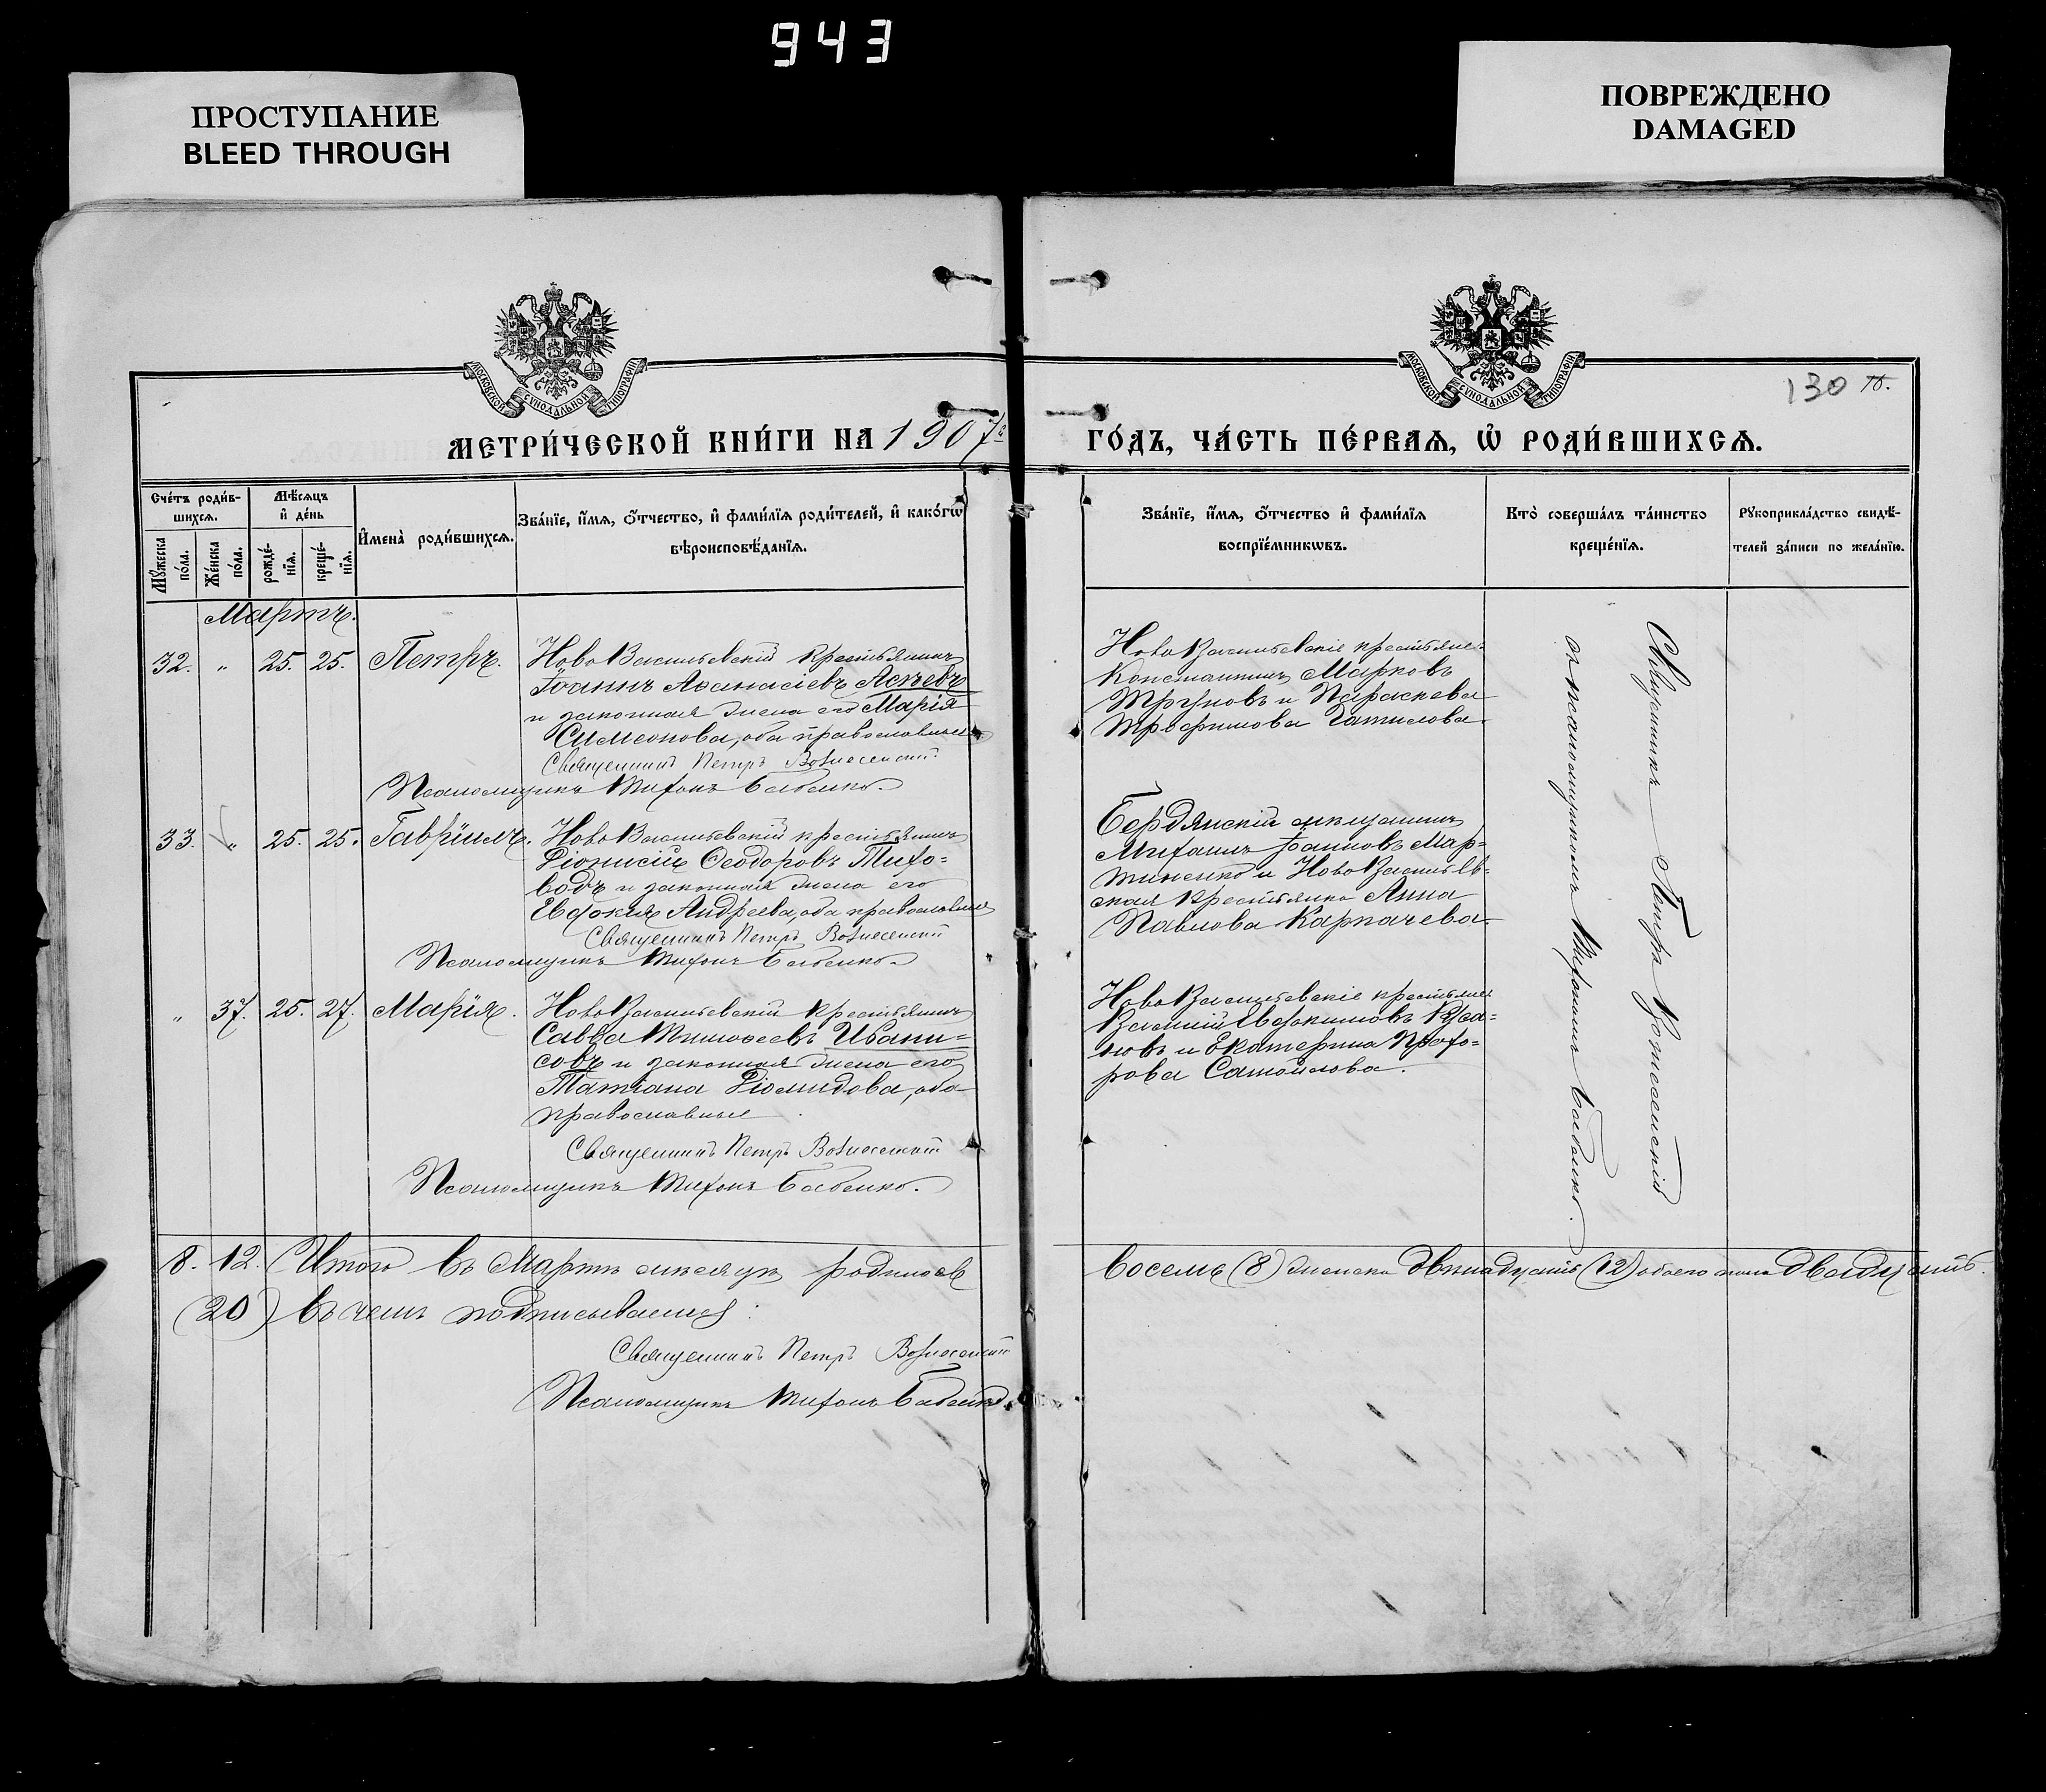 943
ПРОСТУПАНИЕ
BLEED THROUGH
ПОВРЕЖДЕНО
DAMAGED
МОСКОВСКОЙ СѴНОДАЛЬНОЙ ТИПОГРАФІИ
МОСКОВСКОЙ СѴНОДАЛЬНОЙ ТИПОГРАФІИ
130
МЕТРИ́ЧЕСКОЙ КНИ́ГИ НА 1907й
ГО́ДЪ, ЧА́СТЬ ПЕ́РВАѦ, Ѿ РОДИ́ВШИХСѦ.
Сче́тъ роди́в-
шихсѧ.
Мѣ́сѧцъ
и҆ де́нь
Мꙋ́жеска по́ла.
Же́нска по́ла.
рожде́-нїѧ.
креще́-нїѧ.
И҆мена̀ роди́вшихсѧ.
Зва́нїе, и҆́мѧ, ѻ҆́тчество, и҆ фами́лїѧ роди́телей, и҆ како́гѡ
вѣроисповѣ́данїѧ.
Зва́нїе, и҆́мѧ, ѻ҆́тчество и҆ фами́лїѧ
воспрїе́мникѡвъ.
Кто̀ соверша́лъ та́инство
креще́нїѧ.
Рꙋкоприкла́дство свидѣ́-
телей за́писи по жела́нїю.
Мартъ.
32. " 25. 25. Петръ.
НовоВасильевскій крестьянинъ
Іоаннъ Аѳанасіевъ Асѣевъ
и законная жена его Марія
Симеонова, оба православные
Священникъ Петръ Вознесенскій
Псаломщикъ Тихонъ Бабенко.
НовоВасильевскіе крестьяне:
Константинъ Марковъ
Трγновъ и Параскева
Трофимова Данилова.
33. " 25. 25. Гавріилъ.
НовоВасильевскій крестьянинъ
Діонисій Ѳеодоровъ Тихо-
водъ и законная жена его
Евдокія Андреева, оба православные
Священникъ Петръ Вознесенскій
Псаломщикъ Тихонъ Бабенко.
Бердянскій мѣщанинъ
Михаилъ Іоанновъ Мар-
тиненко и НовоВасильев-
ская крестьянка Анна
Павлова Карпачева.
" 37. 25. 27. Марія.
НовоВасильевскій крестьянинъ
Савва Тимоѳеевъ Ивани-
совъ и законная жена его
Татіана Діомидова, оба
православные
Священникъ Петръ Вознесенскій
Псаломщикъ Тихонъ Бабенко.
НовоВасильевскіе крестьяне
Василій Евфимовъ
и Екатерина Прохо-
рова Самойлова.
Священникъ Петръ Вознесенскій
съ псаломщикомъ Тихономъ Бабенко.
8. 12. Итого въ Мартѣ мѣсяцѣ родилось
восемь (8) женска двѣнадцать (12) обоего пола двадцать
(20) въ чемъ подписываемся:
Священникъ Петръ Вознесенскій
Псаломщикъ Тихонъ Бабенко.